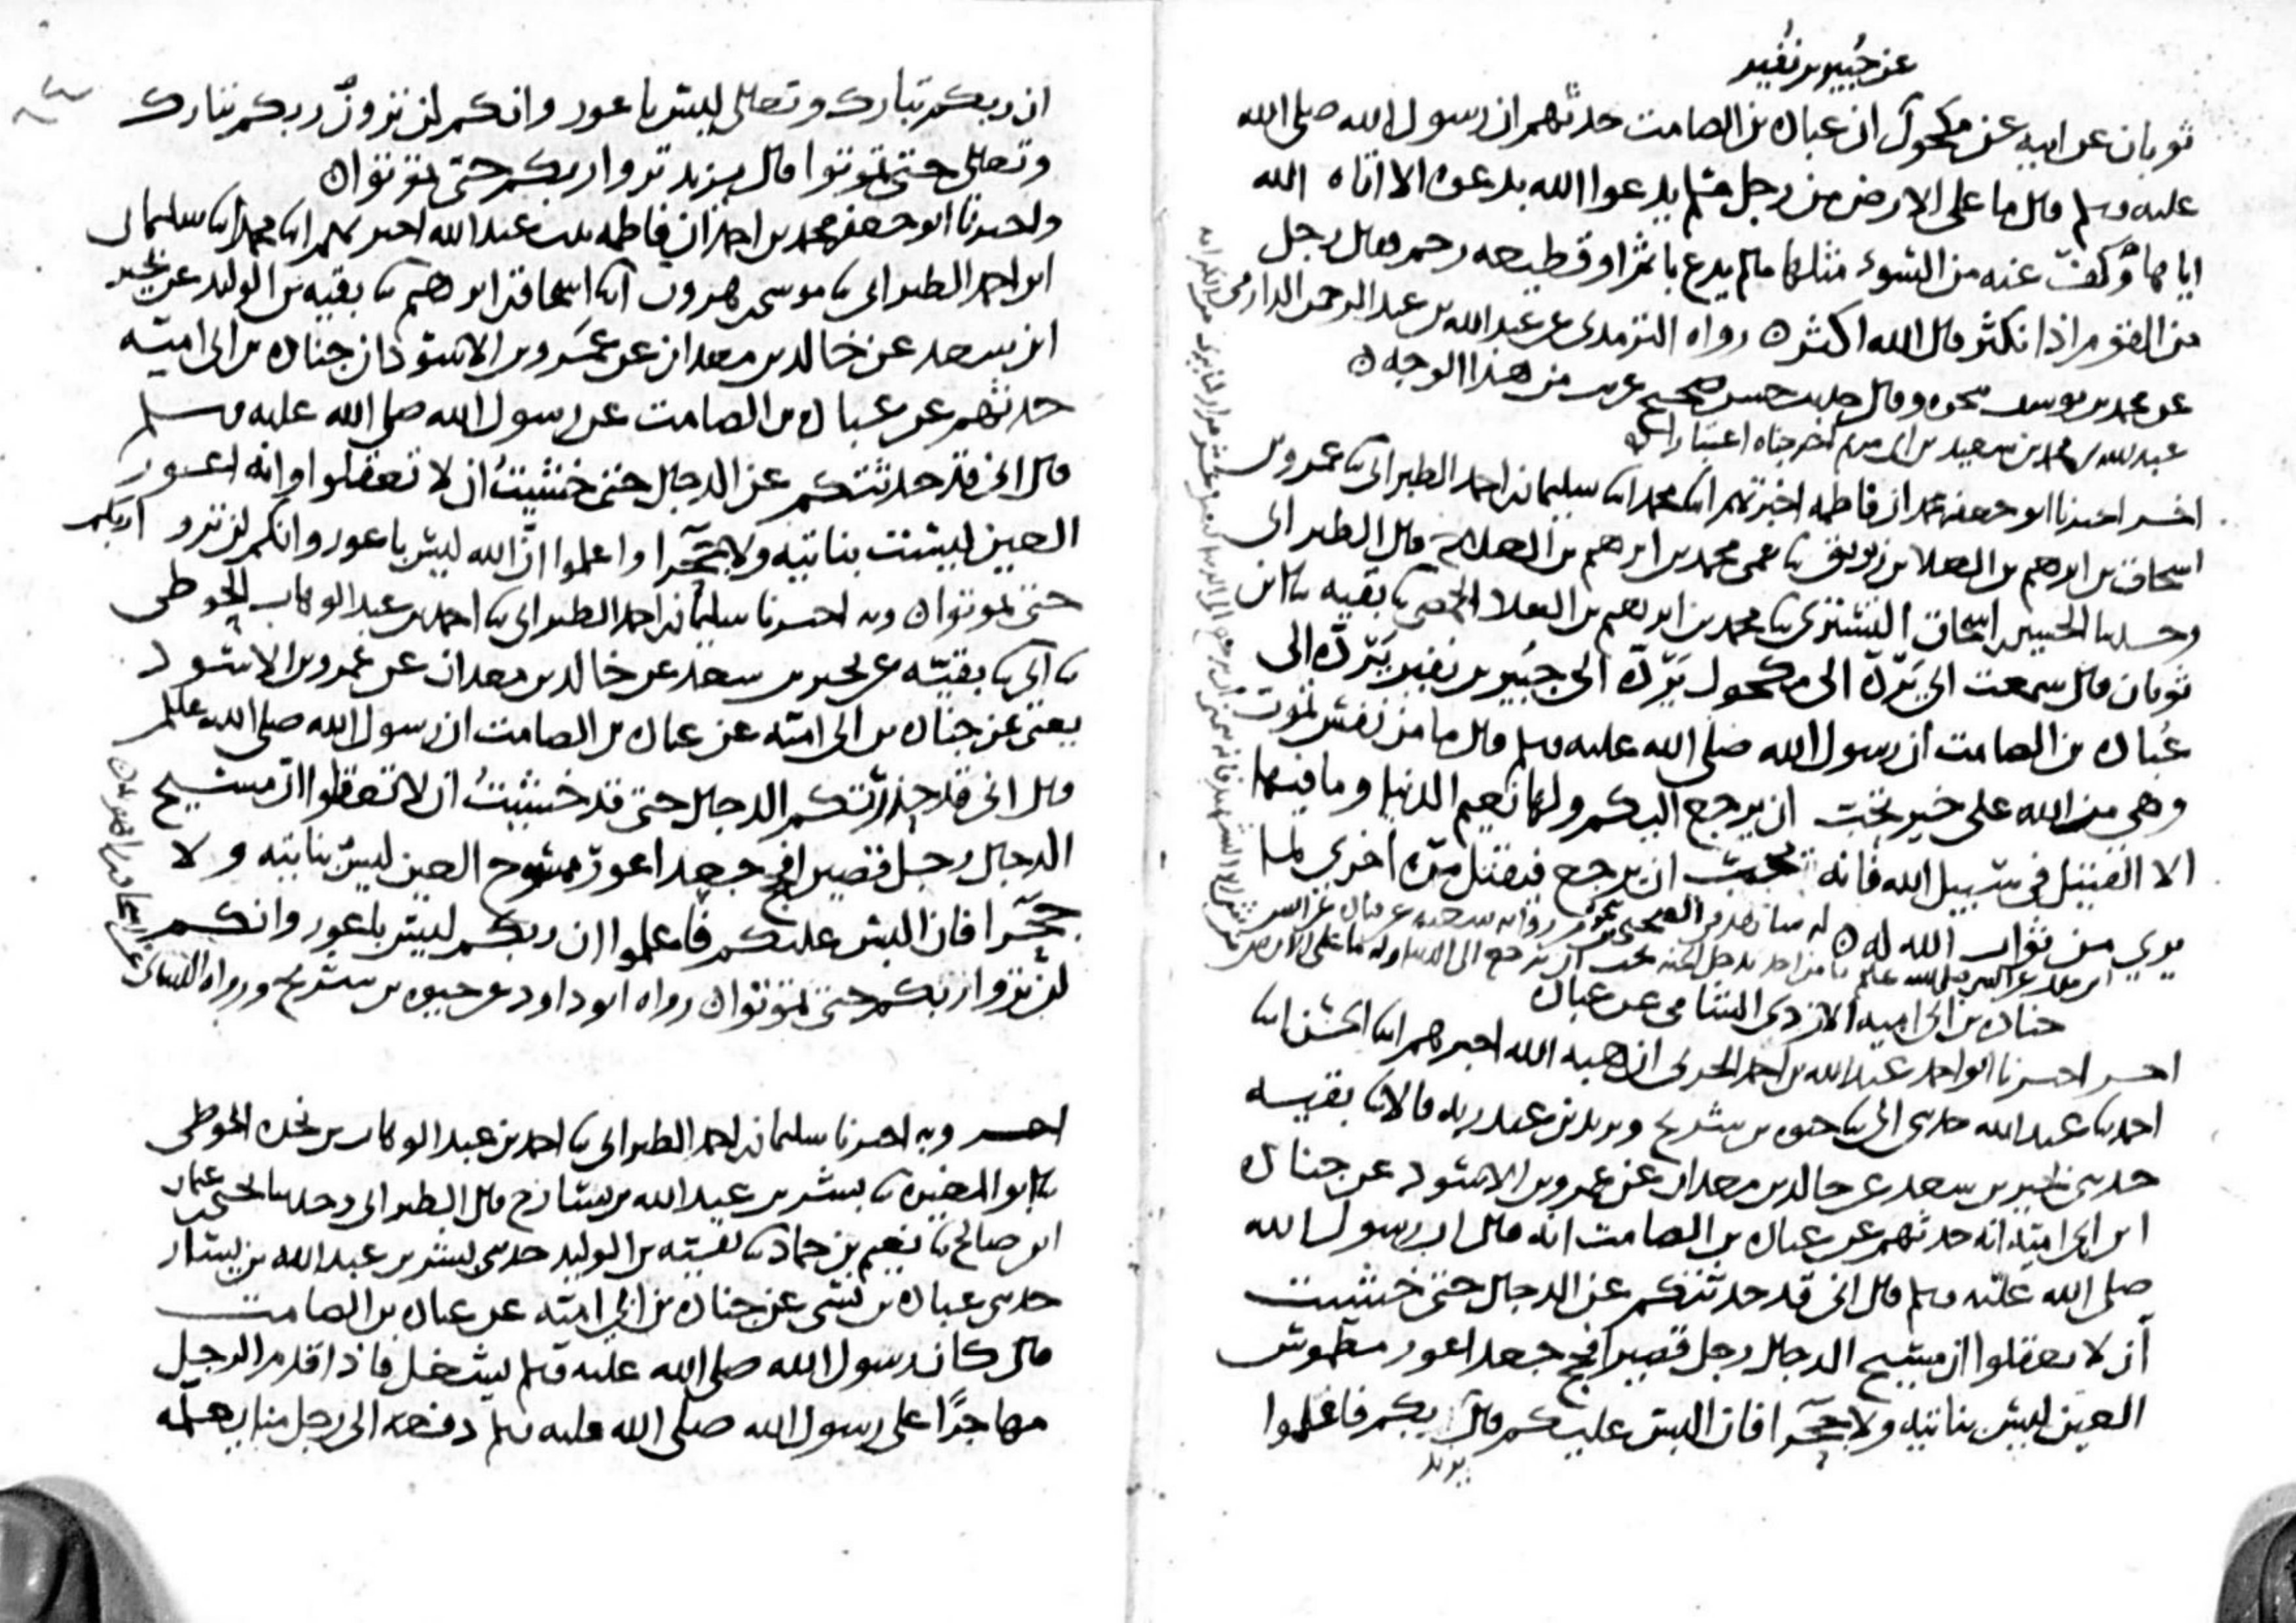 عن جبير بن نفير
ثوبان عن ابيه عن مكحول ان عبادة بن الصامت حدثهم ان رسول الله صلى الله
عليه وسلم قال ما على الارض من رجل مسلم يدعوا الله بدعوة الا اتاه الله
اياها او كف عنه من السوء مثلها ما لم يدع باثم او قطيعه رحم فقال رجل
من القوم اذا نكثر قال الله اكثر ه رواه الترمذي عن عبد الله بن عبد الرحمن الدارمي
عن محمد بن يوسف نحوه وقال حديث حسن صحيح غريب من هذا الوجه ه
عبد الله بن محمد بن سعيد بن ابي مريم
اخر اخبرنا ابو جعفر محمد ان فاطمه اخبرتهم ابنا محمد ابنا سليمان بن احمد الطبراني ثنا عمرو بن
اسحاق بن ابرهيم بن العلا بن زبريق ثنا عمي محمد بن ابرهيم بن العلا ح قال الطبراني
وحدثنا الحسين بن اسحاق التستري ثنا محمد بن ابرهيم بن العلا الحمصي ثنا بقيه ثنا ابن
ثوبان قال سمعت ابي يرده الى مكحول يرده الى جبير بن نفير يرده الى
عباده بن الصامت ان رسول الله صلى الله عليه وسلم قال ما من نفس تموت
وهي من الله على خير تحب ان يرجع اليكم ولها نعيم الدنيا وما فيها
الا القتيل في سبيل الله فانه يحب ان يرجع فيقتل مرة اخرى لما
يرى من ثواب الله له ه
جناده بن ابي اميه الازدي الشامي عن عباده
اخر اخبرنا ابو احمد عبد الله بن احمد الحربي ان هبه الله اخبرهم ابنا الحسن ابنا
احمد ثنا عبد الله حدثني ابي ثنا حيوه بن شريح ويزيد بن عبد ربه قالا ثنا بقيه
حدثني بحير بن سعد عن خالد بن معدان عن عمرو بن الاسود عن جناده
ابن ابي اميه انه حدثهم عن عباده بن الصامت انه قال ان رسول الله
صلى الله عليه وسلم قال اني قد حدثتكم عن الدجال حتى خشيت
ان لا تعقلوا ان مسيح الدجال رجل قصير افحج جعد اعور مطموس
العين ليس بناتيه ولا حجرا فان البس عليكم قال يزيد ربكم فاعلموا
ان ربكم تبارك وتعالى ليس باعور وانكم لن ترون ربكم تبارك
وتعالى حتى تموتوا قال يزيد تروا ربكم حتى تموتوا ه
واخبرنا ابو جعفر محمد بن احمد ان فاطمه بنت عبد الله اخبرتهم ابنا محمد ابنا سليمان
ابن احمد الطبراني ثنا موسى بن هرون ثنا اسحاق بن ابرهيم ثنا بقيه بن الوليد عن بحير
ابن سعد عن خالد بن معدان عن عمرو بن الاسود ان جناده بن ابي اميه
حدثهم عن عباده بن الصامت عن رسول الله صلى الله عليه وسلم
قال اني قد حدثتكم عن الدجال حتى خشيت ان لا تعقلوا وانه اعور
العين ليست بناتيه ولا حجرا واعلموا ان الله ليس باعور وانكم لن تروا ربكم
حتى تموتوا ه وبه اخبرنا سليمان بن احمد الطبراني ثنا احمد بن عبد الوهاب الحوطي
ثنا ابي ثنا بقيه عن بحير بن سعد عن خالد بن معدان عن عمرو بن الاسود
يعني عن جناده بن ابي اميه عن عباده بن الصامت ان رسول الله صلى الله عليه وسلم
قال اني قد حذرتكم الدجال حتى قد خشيت ان لا تعقلوا ان مسيح
الدجال رجل قصير افحج جعد اعور ممسوح العين ليس بناتيه ولا
حجرا فان البس عليكم فاعلموا ان ربكم ليس باعور وانكم
لن تروا ربكم حتى تموتوا ه رواه ابو داود عن حيوه بن شريح ورواه النسائي
عن اسحاق بن ابرهيم
اخر وبه اخبرنا سليمان بن احمد الطبراني ثنا احمد بن عبد الوهاب بن نجده الحوطي
ثنا ابو المغيره ثنا بشر بن عبد الله بن يسار ح قال الطبراني وحدثنا يحيى بن عثمان
ابن صالح ثنا نعيم بن حماد ثنا بقيه بن الوليد حدثني بشر بن عبد الله بن يسار
حدثني عباده بن نسي عن جناده بن ابي اميه عن عباده بن الصامت
قال كان رسول الله صلى الله عليه وسلم يشغل فاذا قدم الرجل
مهاجرا على رسول الله صلى الله عليه وسلم دفعه الى رجل منا يعلمه